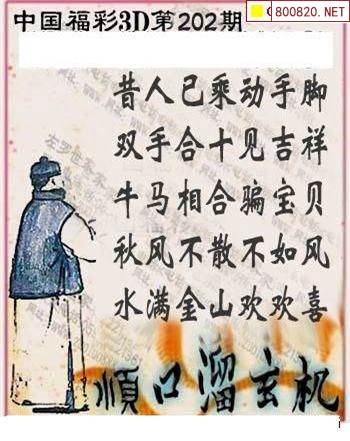 中国福彩3D第202期
800820.NET
昔人已乘动手脚
双手合十见吉祥
牛马相合骗宝贝
秋风不散不如风
水满金山欢欢喜
顺口溜玄机